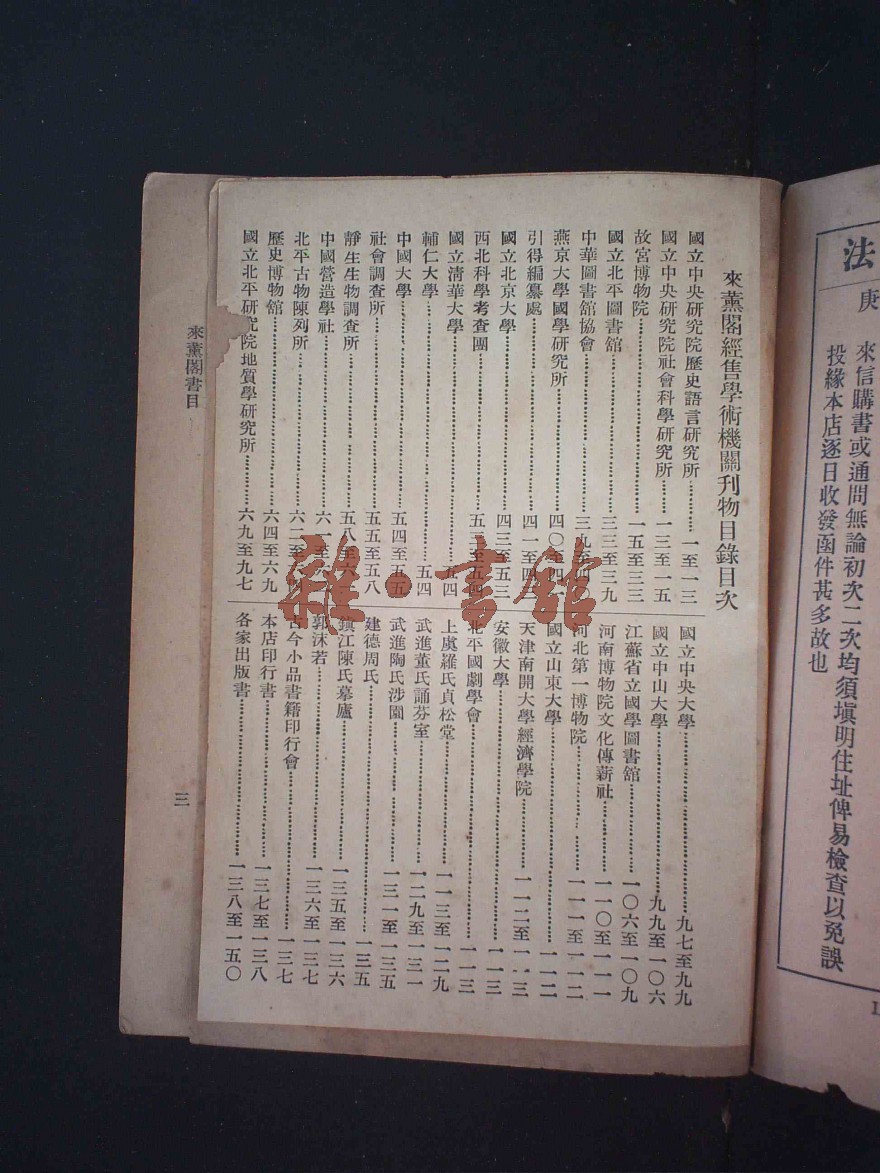 法
庚
來信購書或通問無論初次二次均須塡明住址俾易檢查以免誤
投緣本店逐日收發函件甚多故也
來薰閣經售學術機關刊物目錄目次
國立中央硏究院歷史語言硏究所…………一至一三
國立中央硏究院社會科學硏究所…………一三至一五
故宮博物院…………一五至三三
國立北平圖書館…………三三至三九
中華圖書館協會…………三九至四
燕京大學國學硏究所…………四〇至四
引得編纂處…………四一至四
國立北京大學…………四三至五三
西北科學考查團…………五三至五四
國立清華大學…………五四
輔仁大學…………五四
中國大學…………五四至五五
社會調查所…………五五至五八
靜生生物調查所…………五八至六
中國營造學社…………六一至六
北平古物陳列所…………六二至六四
歷史博物館…………六四至六九
國立北平研究院地質學硏究所…………六九至九七
國立中央大學…………九七至九九
國立中山大學…………九九至一〇六
江蘇省立國學圖書館…………一〇六至一〇九
河南博物院文化傳薪社…………一一〇至一一一
河北第一博物院…………一一一至一一二
國立山東大學…………一一二
天津南開大學經濟學院…………一一二至一一三
安徽大學…………一一三
北平國劇學會…………一一三
上虞羅氏貞松堂…………一一三至一二九
武進董氏誦芬室…………一二九至一三一
武進陶氏涉園…………一三一至一三五
建德周氏…………一三五
鎭江陳氏摹廬…………一三五至一三六
郭沫若…………一三六至一三七
古今小品書籍印行會…………一三七
本店印行書…………一三七至一三八
各家出版書…………一三八至一五〇
來薰閣書目
三
雜·書館